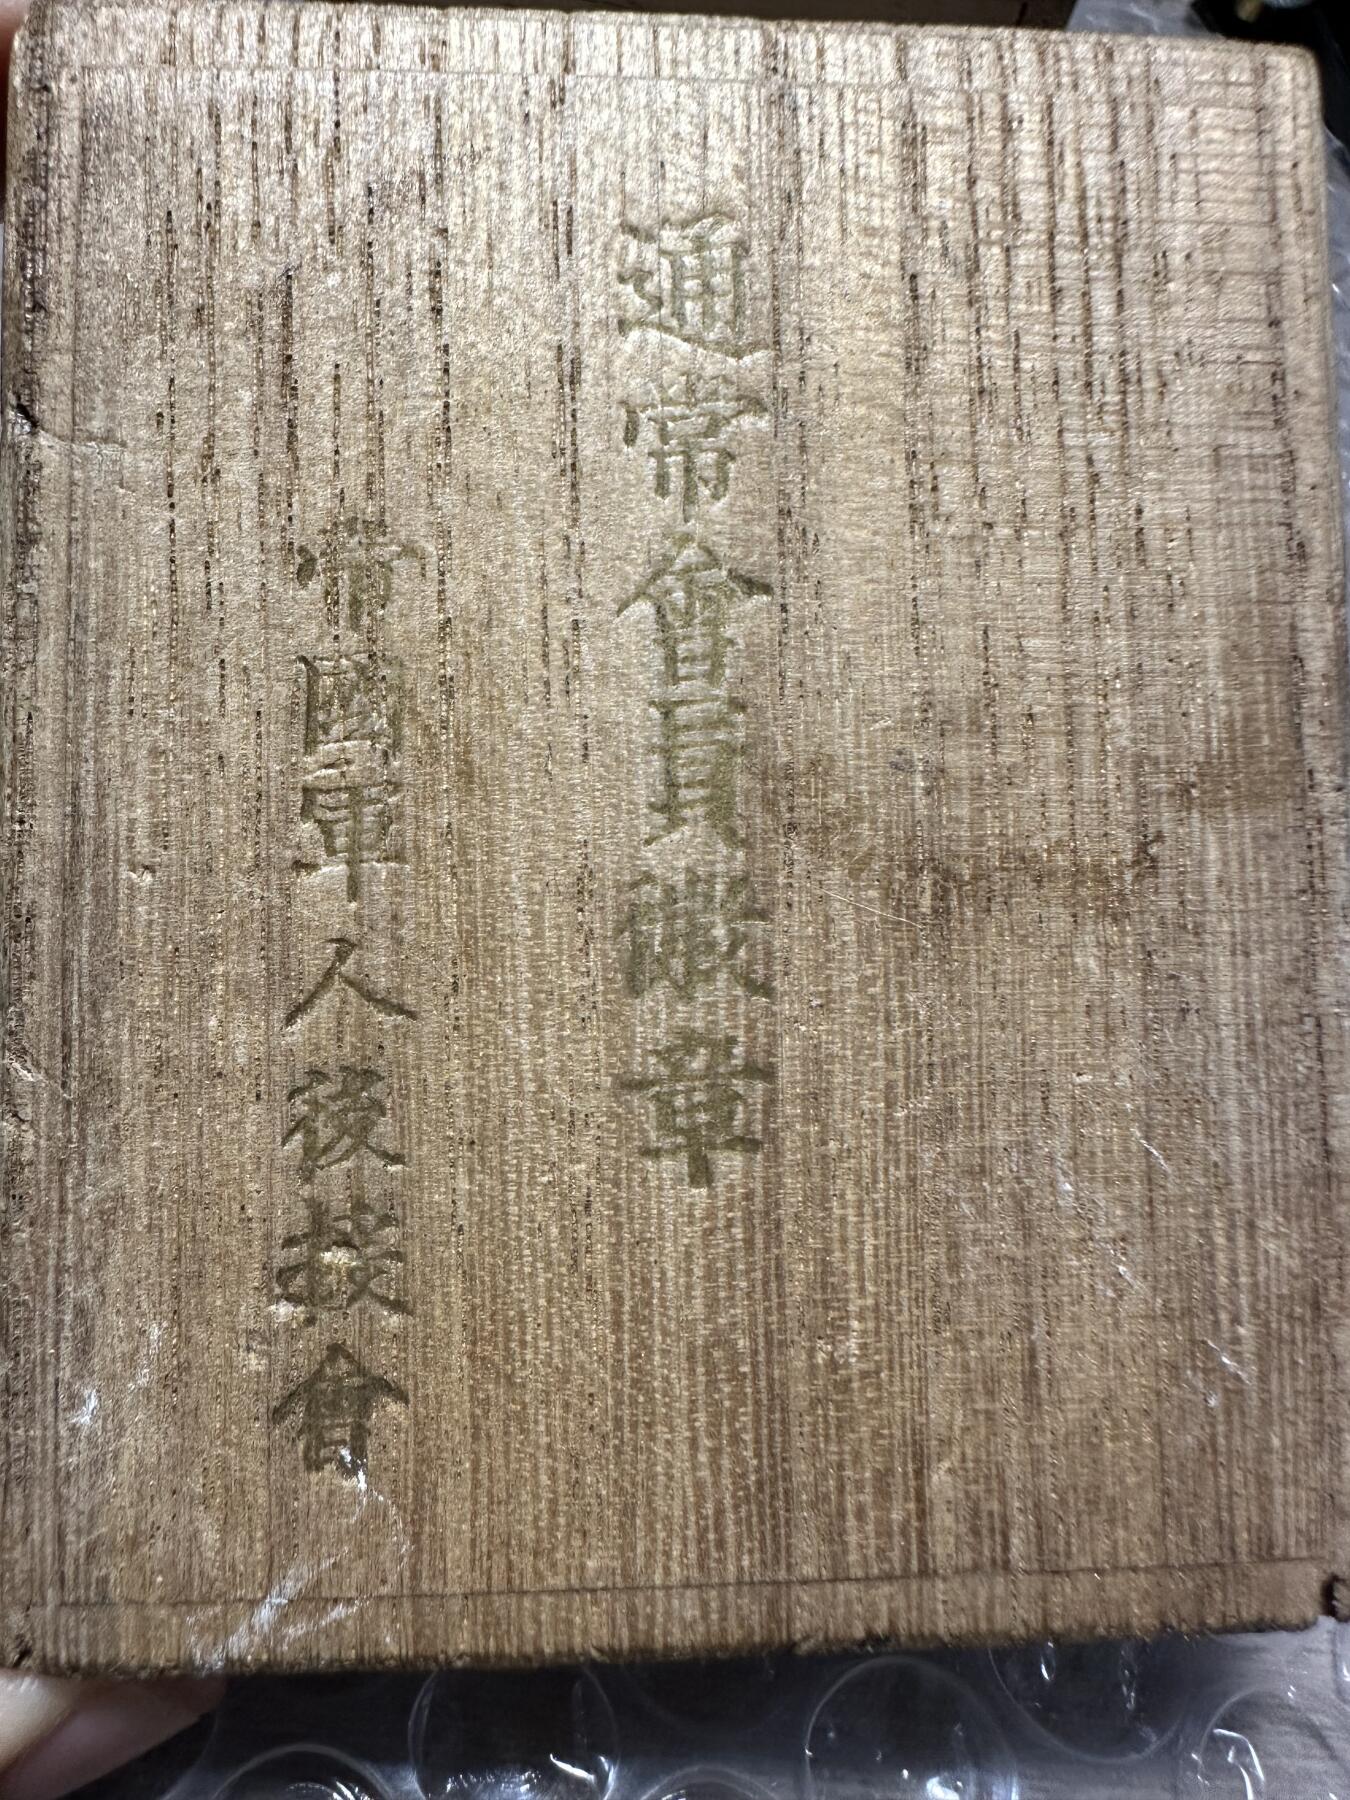 通常會員徽章
帝國軍人後援會